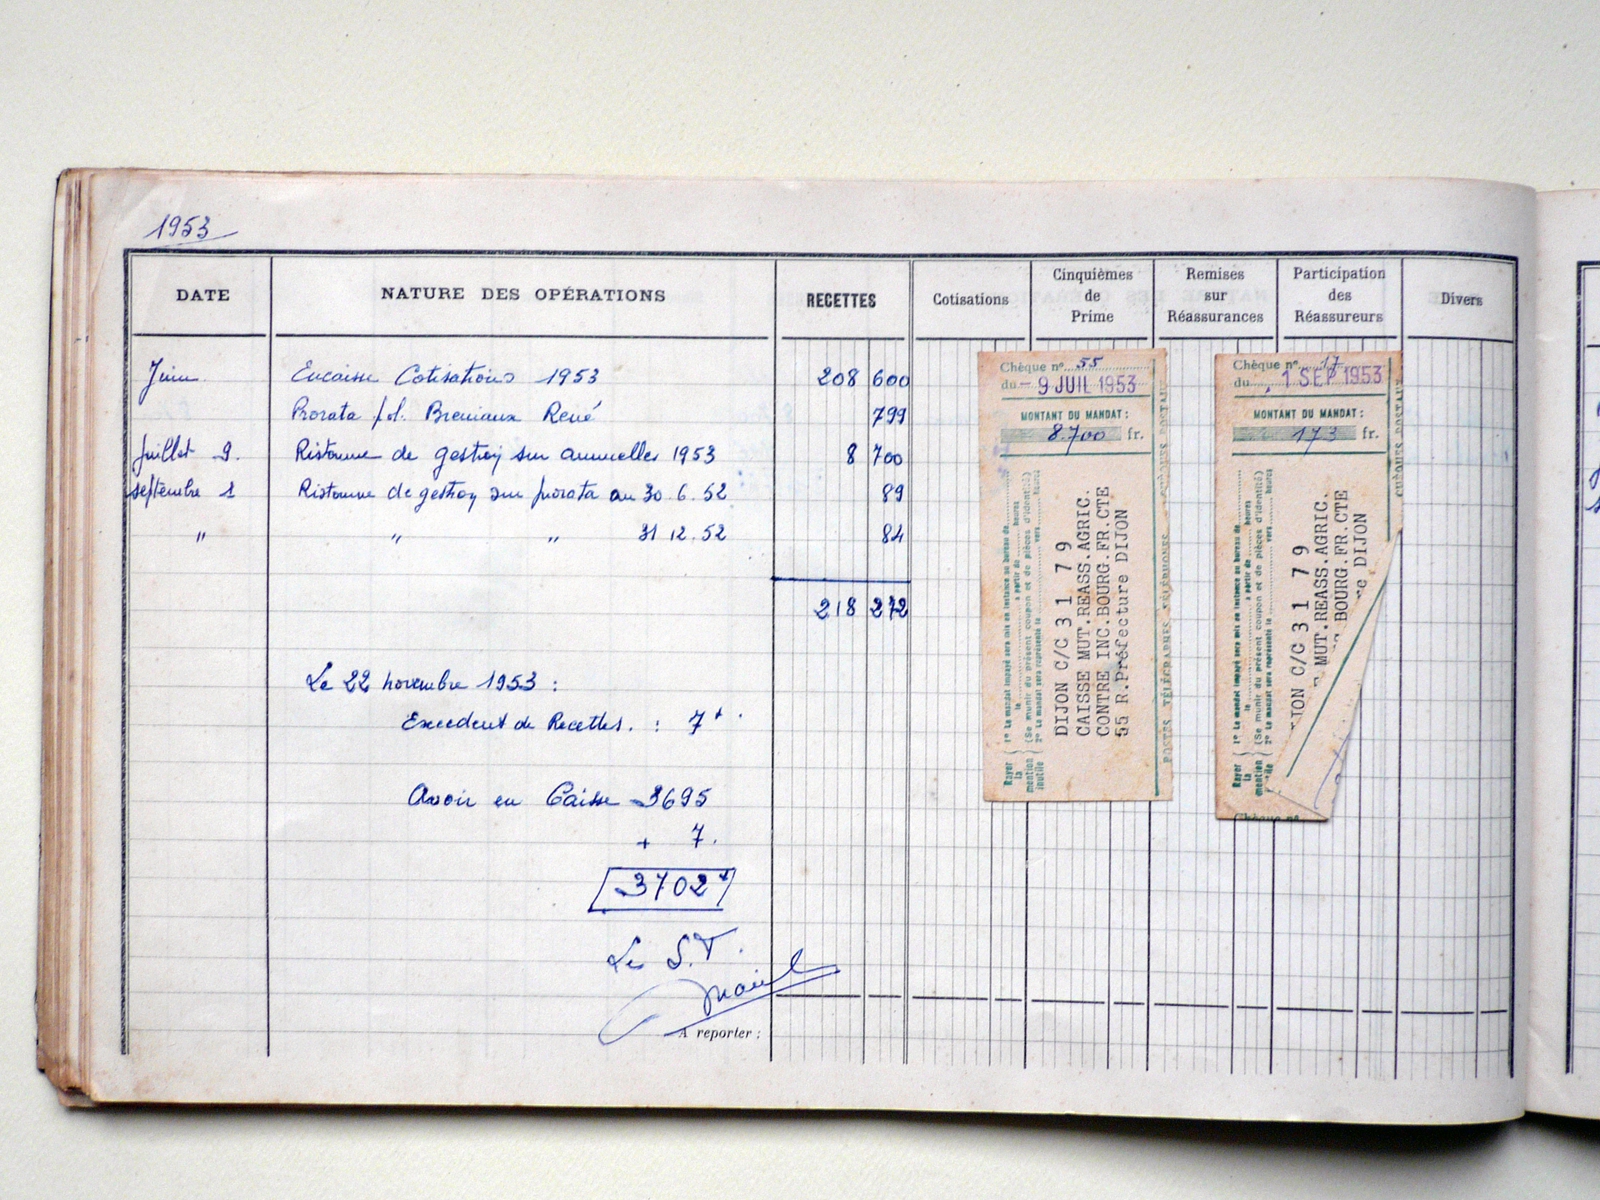 1953
DATE
NATURE DES OPÉRATIONS
RECETTES
Cotisations
Cinquièmes
de
Prime
Remises
sur
Réassurances
Participation
des
Réassureurs
Divers
Juin Encaisse Cotisations 1953 208 600
Prorata pol. Breniaux René 799
Juillet 9. Ristourne de gestion sur annuelles 1953 8 700
septembre 1 Ristourne de gestion sur prorata au 30.6.52 89
" " " 31 12.52 84
218 272
Le 22 novembre 1953 :
Excedent de Recettes. : 7
Avoir en Caisse 3695
+ 7.
3702
Le S.T.
A reporter :
Chèque n° 55
du - 9 JUIL 1953
MONTANT DU MANDAT :
8.700 fr.
DIJON C/C 31 79
CAISSE MUT.REASS.AGRIC.
CONTRE INC.BOURG.FR.CTE
55 R.Préfecture DIJON
1° Le mandat impayé sera mis en instance au bureau de
le à partir de heures
(Se munir du présent coupon et de pièces d'identité)
2° Le mandat sera représenté le vers heures
Rayer
la
mention
inutile
POSTES TÉLÉGRAPHES TÉLÉPHONES CHÈQUES POSTAUX
Chèque n° 17
du 1 SEP 1953
MONTANT DU MANDAT :
173 fr.
JON C/C 31 79
MUT.REASS.AGRIC.
BOURG.FR.CTE
e DIJON
1° Le mandat impayé sera mis en instance au bureau de
le à partir de heures
(Se munir du présent coupon et de pièces d'identité)
2° Le mandat sera représenté le vers heures
Rayer
la
mention
CHÈQUES POSTAUX
Chèque n°